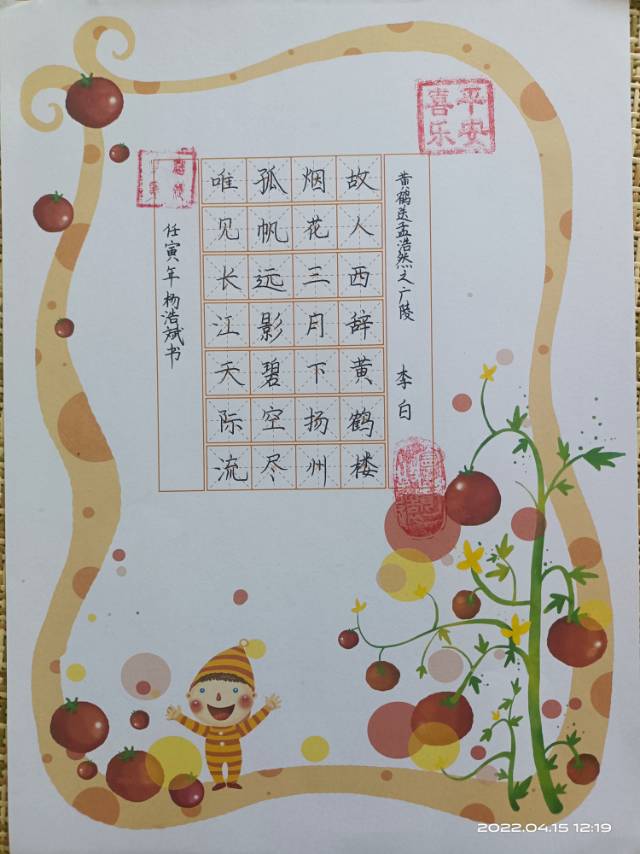 平安
喜乐
黄鹤送孟浩然之广陵 李白
故人西辞黄鹤楼
烟花三月下扬州
孤帆远影碧空尽
唯见长江天际流
任寅年杨浩斌书
2022.04.15 12:19